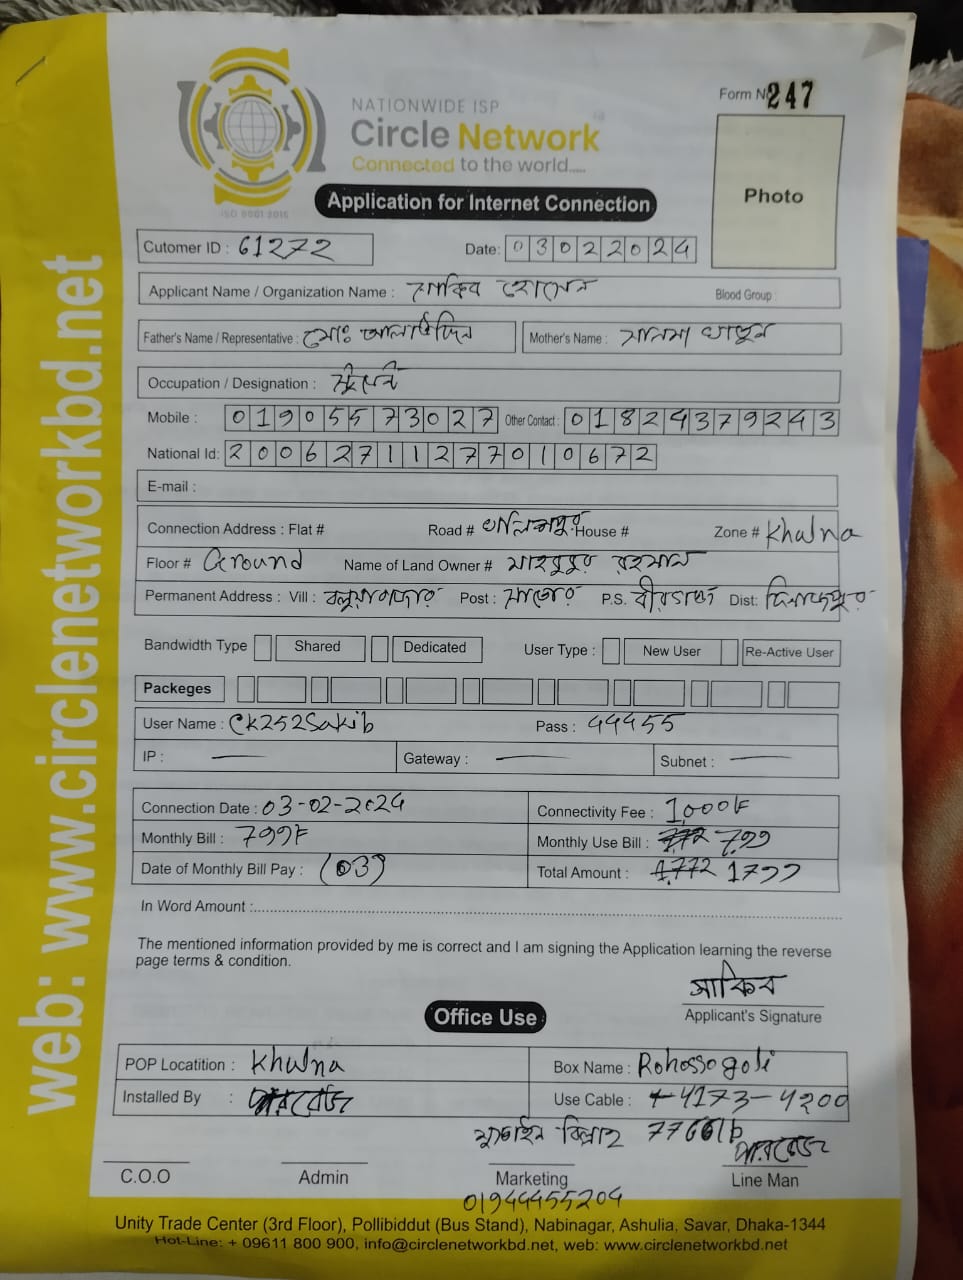 NATIONWIDE ISP
Circle Network
Connected to the world.....
ISO 9001:2015
Form N 247
Photo
Application for Internet Connection
Cutomer ID : 61272 Date: 03022024
Applicant Name / Organization Name : সাকিব হোসেন Blood Group :
Father's Name / Representative : মোঃ আলাউদ্দিন Mother's Name : সালমা খাতুন
Occupation / Designation :
Mobile : 01905573027 Other Contact : 01824379243
National Id: 20062711277010672
E-mail :
Connection Address : Flat # Road # House # Zone # Khulna
Floor # Ground Name of Land Owner # মাহবুবুর রহমান
Permanent Address : Vill : Post : P.S. বীরগঞ্জ Dist: দিনাজপুর
Bandwidth Type Shared Dedicated User Type : New User Re-Active User
Packeges
User Name : Ck252Sakib Pass : 44455
IP : Gateway : Subnet :
Connection Date : 03-02-2024 Connectivity Fee : 1000
Monthly Bill : 799 Monthly Use Bill : 772 799
Date of Monthly Bill Pay : (03) Total Amount : 1772 1799
In Word Amount :
The mentioned information provided by me is correct and I am signing the Application learning the reverse
page terms & condition.
সাকিব
Applicant's Signature
Office Use
POP Locatition : Khulna Box Name : Rohossogoli
Installed By : পারভেজ Use Cable : 4173-4200
বিল্লাহ
পারভেজ
C.O.O Admin Marketing Line Man
01944455204
Unity Trade Center (3rd Floor), Pollibiddut (Bus Stand), Nabinagar, Ashulia, Savar, Dhaka-1344
Hot-Line: + 09611 800 900, info@circlenetworkbd.net, web: www.circlenetworkbd.net
web: www.circlenetworkbd.net